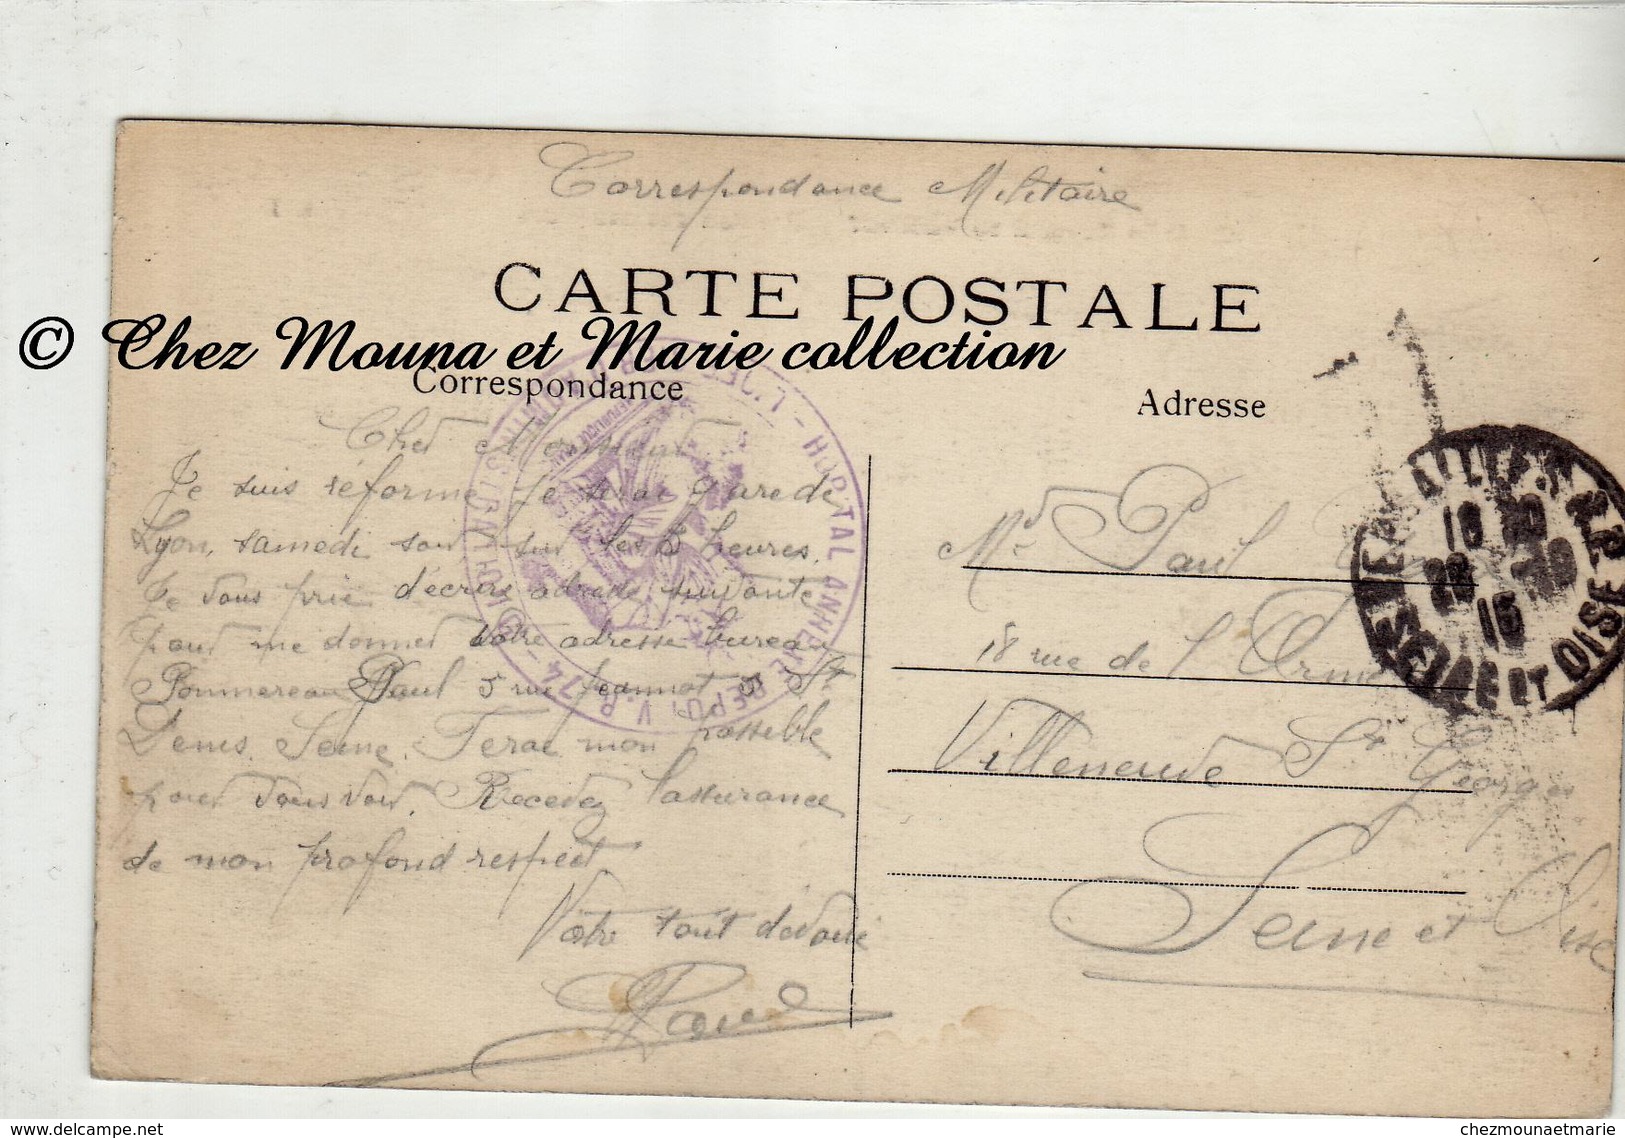 Correspondance Militaire
CARTE POSTALE
© Chez Mouna et Marie collection
Correspondance
Adresse
Cher Monsieur
Je suis réformé je serai gare de
Lyon, samedi soir sur les heures.
Je vous prie d'écrire adresse suivante
pour me donner votre adresse bureau
Pommereau Paul 5 rue Jeannot à St
Denis. Seine. Ferai mon possible
pour vous voir. Recevez l'assurance
de mon profond respect
Votre tout dévoué
Paul
Mr Paul
18 rue de l'Orme
Villeneuve St Georges
Seine et Oise
HOPITAL ANNEXE DEPOT V.R. 74
VERSAILLES
SEINE ET OISE
15
delcampe.net
chezmounaetmarie